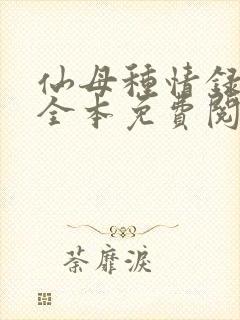 仙母種情録
全本免費閱
荼靡淚